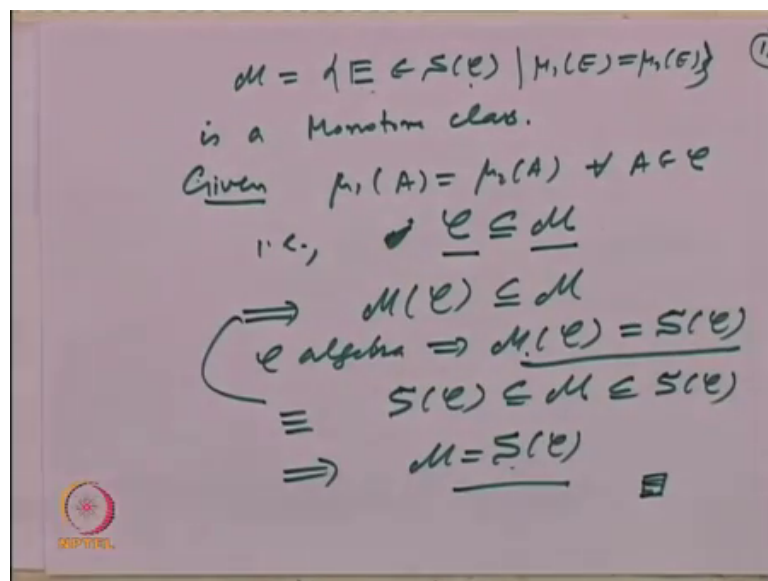 M = {E ∈ S(𝒞) | μ₁(E) = μ₂(E)}
is a Monotone class.
Given μ₁(A) = μ₂(A) ∀ A ∈ 𝒞
i.e., 𝒞 ⊆ M
⟹ M(𝒞) ⊆ M
𝒞 algebra ⟹ M(𝒞) = S(𝒞)
≡ S(𝒞) ⊆ M ⊆ S(𝒞)
⟹ M = S(𝒞)
NPTEL